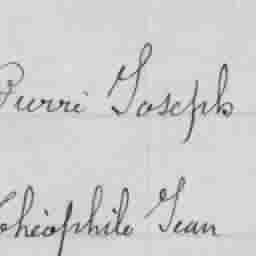 Purri Joseph
Théophile Jean